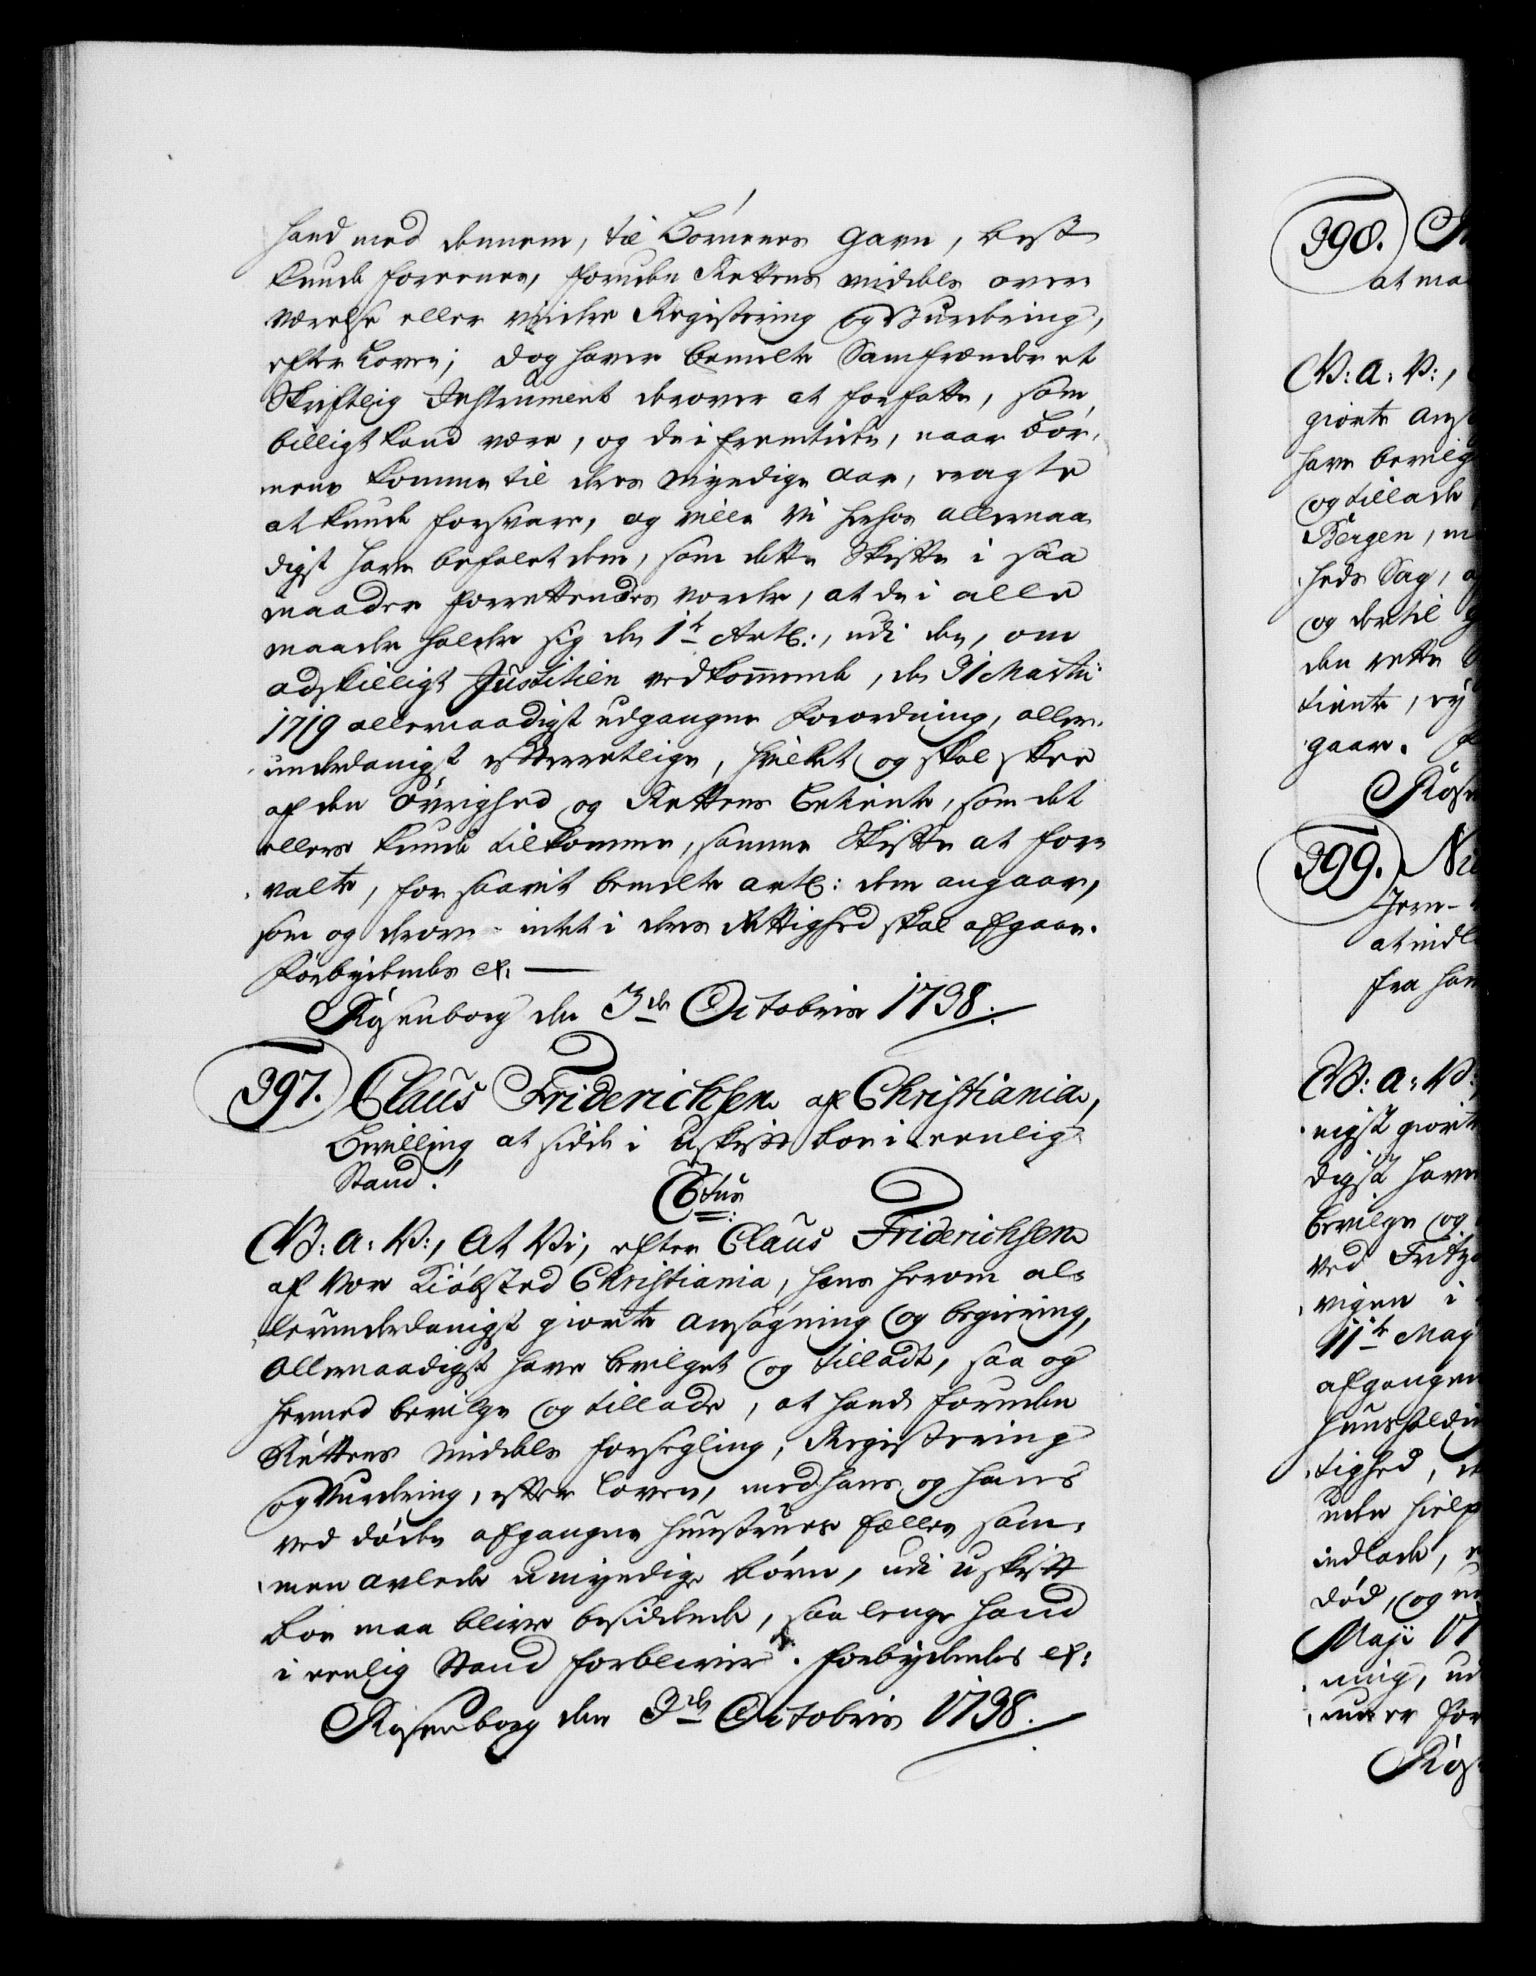 hand med dennem, til Børnenes Gavn, best
kunde foreenes, foruden Rettens middels over-
værelse eller videre Registering og Vurdering,
efter Loven; dog haver bemelte Samfrænder et
Skriftlig Instrument derover at forfatte, som
billigt kand være, og de i fremtiden, naar Bør-
nene komme til deres Myndige Aar, eragte
at kunde forsvare, og ville Vi herhos allernaa-
digst have befalet dem, som dette Skifte i saa
maader forrettendes vorder, at de i alle
maader holder sig den 1te Artl:, udi den, om
adskilligt Justitien vedkommende, den 31 Martii
1719 allernaadigst udgangne Forordning, aller-
underdanigst efterretlige, hvilket og skal skee
af den Øvrighed og Rettens Betiente, som det
ellers kunde tilkomme, samme Skifte at for-
valte, for saavit bemelte artl: dem angaar,
som og derom intet i deres Rettighed skal afgaae.
Forbydendes &.
Rosenborg den 3de Octobris 1738.
397. Claus Friderichsen af Christiania,
Bevilling at sidde i uskifte boe i eenlig
Stand.
Ctus
V: A: V:, At Vi, efter Claus Friderichsen
af Vor Kiøbsted Christiania, hans herom al-
lerunderdanigst giorte ansøgning og begiering,
Allernaadigst have bevilget og tilladt, saa og
hermed bevilge og tillade, at hand foruden
Rettens Middels forsegling, Registering
og Vurdering, efter Loven, med hans og hans
ved døden afgangne Huustrues fælles sam-
men avlede umyndige Børn, udi uskift
boe maa blive besiddende, saa lenge hand
i eenlig Stand forbliver. Forbydendes &:
Rosenborg den 3de Octobris 1738.
398.
at ma
V: A: V:,
giorte Ans
have bevilg
og tillade
Bergen, m
heds Sag,
og dertil
den rette
tiente,
gaae.
Rose
399. Nie
Jern-
at indl
fra han
V: A: V:
nigst giort
digst have
bevilge og
ved Fritz
vigen i
11te May
afgangen
Huusholdn
tighed,
uden hielp
indlade,
død, og
Maji 17
ning, ud
for
Rose